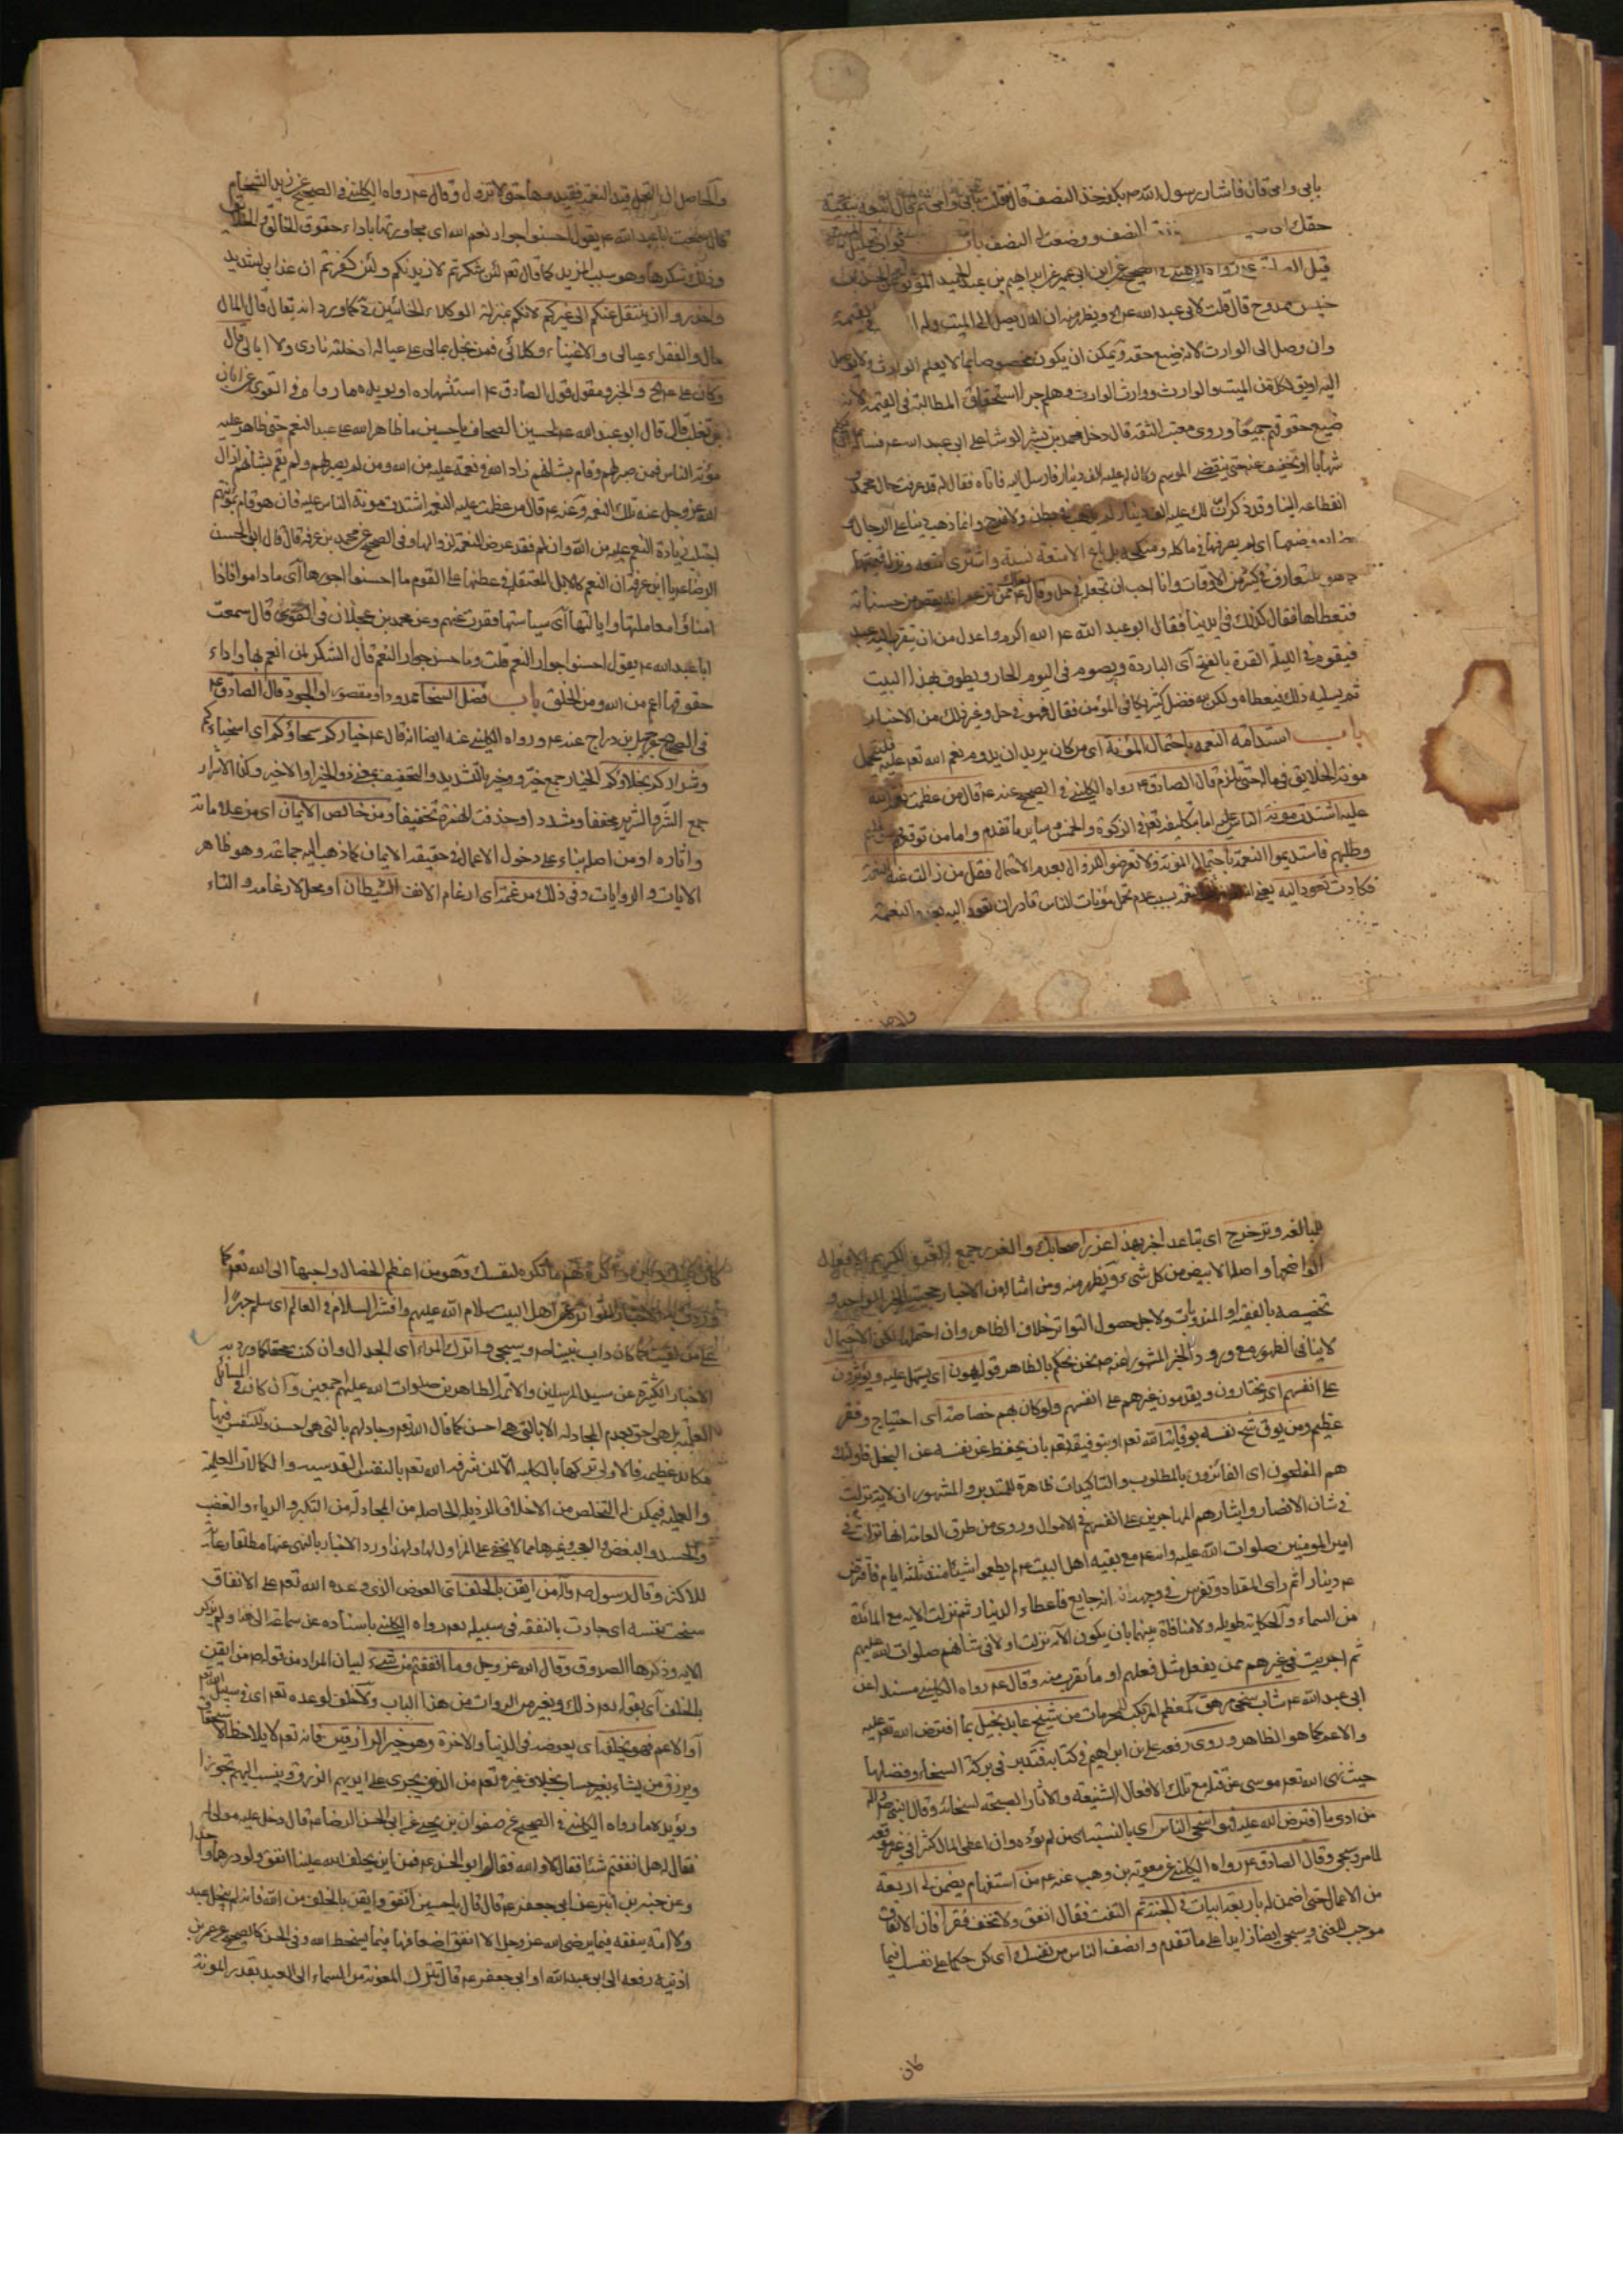 بابى وامى قال فاشار رسول الله ص بكفه خذ النصف قال قلت بابى وامى ثم قال اتبعه ببقية
حقك النصف ووضعت له النصف باب ثواب تحليل الميت
قيل الصادق ع رواه الكلينى فى الصحيح عن ابن ابى عمير عن ابراهيم بن عبد الحميد الموثق عن الحسن بن
خنيس ممدوح قال قلت لابى عبد الله ع الخ ويظهر منه ان المال يصل الى الميت وله فى القيمة
وان وصل الى الوارث لانه ضيع حقه ويمكن ان يكون مخصوصا بما لا يعلم الوارث ولا يوصل
اليه او يق لكل من الميت والوارث ووارث الوارث وهلم جرا استحقاق المطالبة فى القيمة لانه
ضيع حقوقهم جميعا وروى معتب الثقة قال دخل محمد بن بشر الوشا على ابى عبد الله ع فسأله ان يكلم
شهابا ان يخفف عنه حتى ينقضى الموسم وكان له عليه الف دينار فارسل اليه فاتاه فقال له قد عرفت حال محمد و
انقطاعه الينا وقد ذكر ان لك عليه الف دينار لم يذهب فى بطن ولا فرج وانما ذهبت دينا على الرجال و
وضايع وضعها اى لم يصرفها فى ماكله ومنكحه بل بايع الامتعة نسية واشترى امتعة ونزل قيمتها
كما هو المتعارف فى كثير من الاوقات وانا احب ان تجعله فى حل وقال لعلك ممن تزعم انه يقبض من حسناته
فتعطاها فقال كذلك فى ايدينا فقال ابو عبد الله ع الله اكرم واعدل من ان يتقرب اليه عبده
فيقوم فى الليلة القرة بالفتح اى الباردة ويصوم فى اليوم الحار ويطوف بهذا البيت
ثم يسلبه ذلك فيعطاه ولكن لله فضل كثير يكافى المؤمن فقال فهو فى حل وغير ذلك من الاخبار
باب استدامة النعمة باحتمال المؤنة اى من كان يريد ان يدوم نعم الله تعه عليه فليتحمل
مؤنة الخلايق فى ماله حتى يلزم قال الصادق ع رواه الكلينى فى الصحيح عنه ع قال من عظمت نعمة الله
عليه اشتدت مؤنة الناس عليه اما بتكليفه تعه فى الزكوة والخمس وساير ما تقدم واما من توقعهم منه
وطلبهم فاستديموا النعمة باحتمال المؤنة ولا تعرضوها للزوال بعدم الاحتمال فقل من زالت عنه النعمة
فكادت تعود اليه يعنى اذا زالت النعمة بسبب عدم تحمل مؤنات الناس فنادر ان تعود اليه تلك النعمة
والحاصل
والحاصل ان التحمل قيد النعمة فقيدوها حتى لا تزول وقال ع رواه الكلينى فى الصحيح عن زيد الشحام
قال سمعت ابا عبد الله ع يقول احسنوا جوار نعم الله اى مجاورتها باداء حقوق الخالق والخلق
وذلك شكرها وهو سبب المزيد كما قال تعه لئن شكرتم لازيدنكم ولئن كفرتم ان عذابى لشديد
واحذروا ان ينتقل عنكم الى غيركم لانكم بمنزلة الوكلاء الخائنين كما ورد انه تعالى قال المال
مالى والفقراء عيالى والاغنياء وكلائى فمن بخل بمالى على عيالى ادخلته نارى ولا ابالى وقال
وكان على ع الخ والخبر مقول قول الصادق ع استشهادا ويؤيده ما رواه فى القوى عن ابان
بن تغلب قال قال ابو عبد الله ع لحسين الصحاف يا حسين ما ظاهر الله على عبد النعم حتى ظاهر عليه
مؤنة الناس فمن صبر لهم وقام بشأنهم زاد الله فى نعمه عليه من الله ومن لم يصبر لهم ولم يقم بشأنهم ازال
الله عز وجل عنه تلك النعمة وعنه ع قال من عظمت عليه النعمة اشتدت مؤنة الناس عليه فان هو قام بمؤنتهم
اجتلب زيادة النعم عليه من الله وان لم فقد عرض النعمة لزوالها وفى الصحيح عن محمد بن عرفة قال قال ابى الحسن
الرضا ع يا ابن عرفة ان النعم كالابل المعتقلة فى عطنها على القوم ما احسنوا جوارها اى ما داموا فاذا
اساؤا معاملتها وايالتها اى سياستها نفرت عنهم وعن محمد بن عجلان فى القوى قال سمعت
ابا عبد الله ع يقول احسنوا جوار النعم قلت وما حسن جوار النعم قال الشكر لمن انعم بها واداء
حقوقها اعم من الله ومن الخلق باب فضل السخا ممدودا ومقصورا والجود قال الصادق ع
فى الصحيح عن جميل بن دراج عنه ع ورواه الكلينى عنه ايضا انه قال ع خياركم سمحاؤكم اى اسخياءكم
وشراركم بخلاؤكم الخيار جمع خير وخير بالتشديد والتخفيف بمعنى ذو الخير او الاخير وكذا الاشرار
جمع الشر والشرير مخففا ومشددا وحذفت الهمزة تخفيفا ومن خالص الايمان اى من علاماته
واثاره او من اصله بناء على دخول الاعمال فى حقيقة الايمان كما ذهب اليه جماعة وهو ظاهر
الايات والروايات وفى ذلك مرغمة اى ارغام الانف الشيطان او محل لارغامه والتاء
للمبالغة وتزحزح اى تباعد اخبر بهذا غرر اصحابك والغرر جمع الاغر اى الكريم الافعال
الواضحها واصله الابيض من كل شىء ويظهر منه ومن امثاله من الاخبار حجية الخبر الواحد و
تخصيصه بالفقيه او المندوبات ولاجل حصول التواتر خلاف الظاهر وان احتمله لكن الاحتمال
لا ينافى الظهور مع ورود الخبر المشهور عنه ص نحن نحكم بالظاهر قوله يهون اى يسهل عليه ويؤثرون
على انفسهم اى يختارون ويقدمون غيرهم على انفسهم ولو كان بهم خصاصة اى احتياج وفقر
عظيم ومن يوق شح نفسه بوقاية الله تعه او بتوفيقه تعه بان يحفظ عن نفسه عن البخل فاولئك
هم المفلحون اى الفائزون بالمطلوب والتاكيدات ظاهرة للمتدبر والمشهور ان الاية نزلت
فى شان الانصار وايثارهم المهاجرين على انفسهم فى الاموال وروى من طرق العامة انها نزلت فى
امير المومنين صلوات الله عليه وانه ع مع بقية اهل البيت ع لم يطعموا شيئا منذ ثلثة ايام فاقترض
ع دينارا ثم راى المقداد وتفرس فى وجهه انه جايع فاعطاه الدينار ثم نزلت الاية مع المائدة
من السماء والحكاية طويلة ولا منافاة بينهما بان يكون الاية نزلت اولا فى شانهم صلوات الله عليهم
ثم اجريت فى غيرهم ممن يفعل مثل فعلهم او ما يقرب منه وقال ع رواه الكلينى مسندا عن
ابى عبد الله ع شاب سخى مرهق كمعظم المرتكب للمحرمات من شيخ عابد بخيل بما افترض الله تعه عليه
والاعم كما هو الظاهر وروى رفعه على بن ابراهيم فى كتابه فتدبر فى بركة السخاء وفضلها
حيث نهى الله تعه موسى عن قتله مع تلك الافعال الشنيعة والاثار القبيحة لسخائه وقال النبى صلى الله عليه واله
من ادى ما افترض الله عليه فهو اسخى الناس اى بالنسبة الى من لم يؤده وان اعطى المال كثيرا فى غير موقعه
لما مر وسيجى وقال الصادق ع رواه الكلينى عن معوية بن وهب عنه ع من استفهام يضمن لى اربعة
من الاعمال حتى اضمن له باربعة ابيات فى الجنة ثم التفت فقال انفق ولا تخف فقرا فان الانفاق
موجب للغنى وسيجى ايضا زايدا على ما تقدم وانصف الناس من نفسك اى كن حكما على نفسك فيما
كان
كان بينك وبين واكره لهم ما تكره لنفسك وهو من اعظم الخصال واحبها الى الله تعه كما
ورد فى الاخبار المتواترة عن اهل البيت سلام الله عليهم وافش السلام فى العالم اى سلم جهرا
على من لقيت كما كان داب نبينا ص وسيجى واترك المراء اى الجدال وان كنت محقا كما ورد به
الاخبار الكثيرة عن سيد المرسلين والائمة الطاهرين صلوات الله عليهم اجمعين وان كان فى المسائل
العلمية بل هى احق بعدم المجادلة الا بالتى هى احسن كما قال الله تعه وجادلهم بالتى هى احسن وللنفس فيها
مكائد عظيمة فالاولى تركها بالكلية الا لمن شرفه الله تعه بالنفس القدسية والكمالات العلمية
والعملية فيمكن له التخلص من الاخلاق الرذيلة الحاصلة من المجادلة من التكبر والرياء والغضب
والحسد والبغض والعجب وغيرها مما لا يخفى على المزاول لها ولهذا ورد الاخبار بالنهى عنها مطلقا رعاية
للاكثر وقال رسول الله ص واله من ايقن بالخلف اى العوض الذى وعده الله تعه على الانفاق
سخت نفسه اى جادت بالنفقة فى سبيله تعه رواه الكلينى باسناده عن سماعة الى هنا ولم يذكر
الاية وذكرها الصدوق وقال الله عز وجل وما انفقتم من شىء لبيان المراد من قوله ص من ايقن
بالخلف اى بقوله تعه ذلك وبغيره من الروايات من هذا الباب ولا خلف لوعده تعه اى فى سبيل الله تعه
او الاعم فهو يخلفه اى يعوضه فى الدنيا والاخرة وهو خير الرازقين فانه تعه لا يلاحظ الاستحقاق
ويرزق من يشاء بغير حساب بخلاف غيره تعه من الذين يجرى على ايديهم الرزق وينسب اليهم تجوزا
ويؤيده ما رواه الكلينى فى الصحيح عن صفوان بن يحيى عن ابى الحسن الرضا ع قال دخل عليه مولى له
فقال له هل انفقتم شيئا فقال لا والله فقال ابو الحسن ع فمن اين يخلف الله علينا انفق ولو درهما واحدا
وعن ابى جعفر ع قال قال يا حسين انفق وايقن بالخلف من الله فانه لم يبخل عبد
ولا امة بنفقة فيما يرضى الله عز وجل الا انفق اضعافها فيما يسخط الله وفى الحسن كالصحيح عن عمر بن
اذينة رفعه الى ابى عبد الله او ابى جعفر ع قال تنزل المعونة من السماء الى العبد بقدر المؤنة